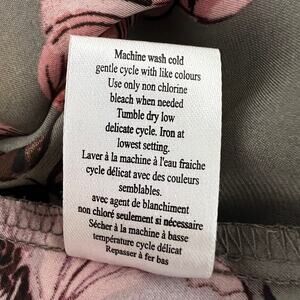 Machine wash cold
gentle cycle with like colours
Use only non chlorine
bleach when needed
Tumble dry low
delicate cycle. Iron at
lowest setting.
Laver à la machine à l'eau fraiche
cycle délicat avec des couleurs
semblables.
avec agent de blanchiment
non chloré seulement si nécessaire
Sécher à la machine à basse
température cycle délicat
Repasser à fer bas